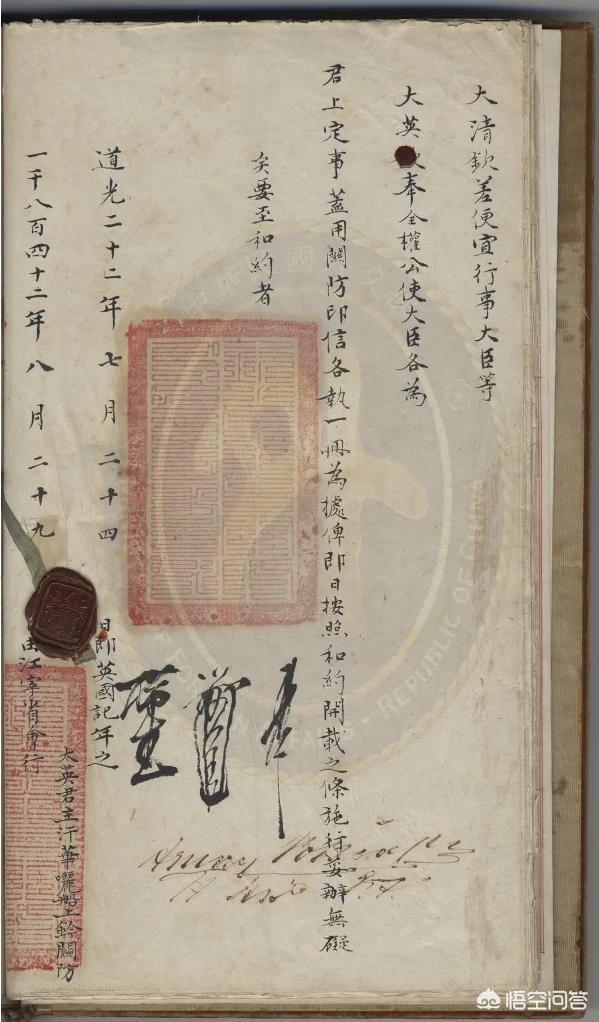 大清欽差便宜行事大臣等
大英 奉全權公使大臣各為
君上定事蓋用關防印信各執一冊為據俾即日按照和約開載之條施行妥辦無礙
矣要至和約者
道光二十二年七月二十四日即英國記年之
一千八百四十二年八月二十九 由江寧省會行
大英君主汗華囇船上鈐關防
REPUBLIC OF CHINA
悟空问答